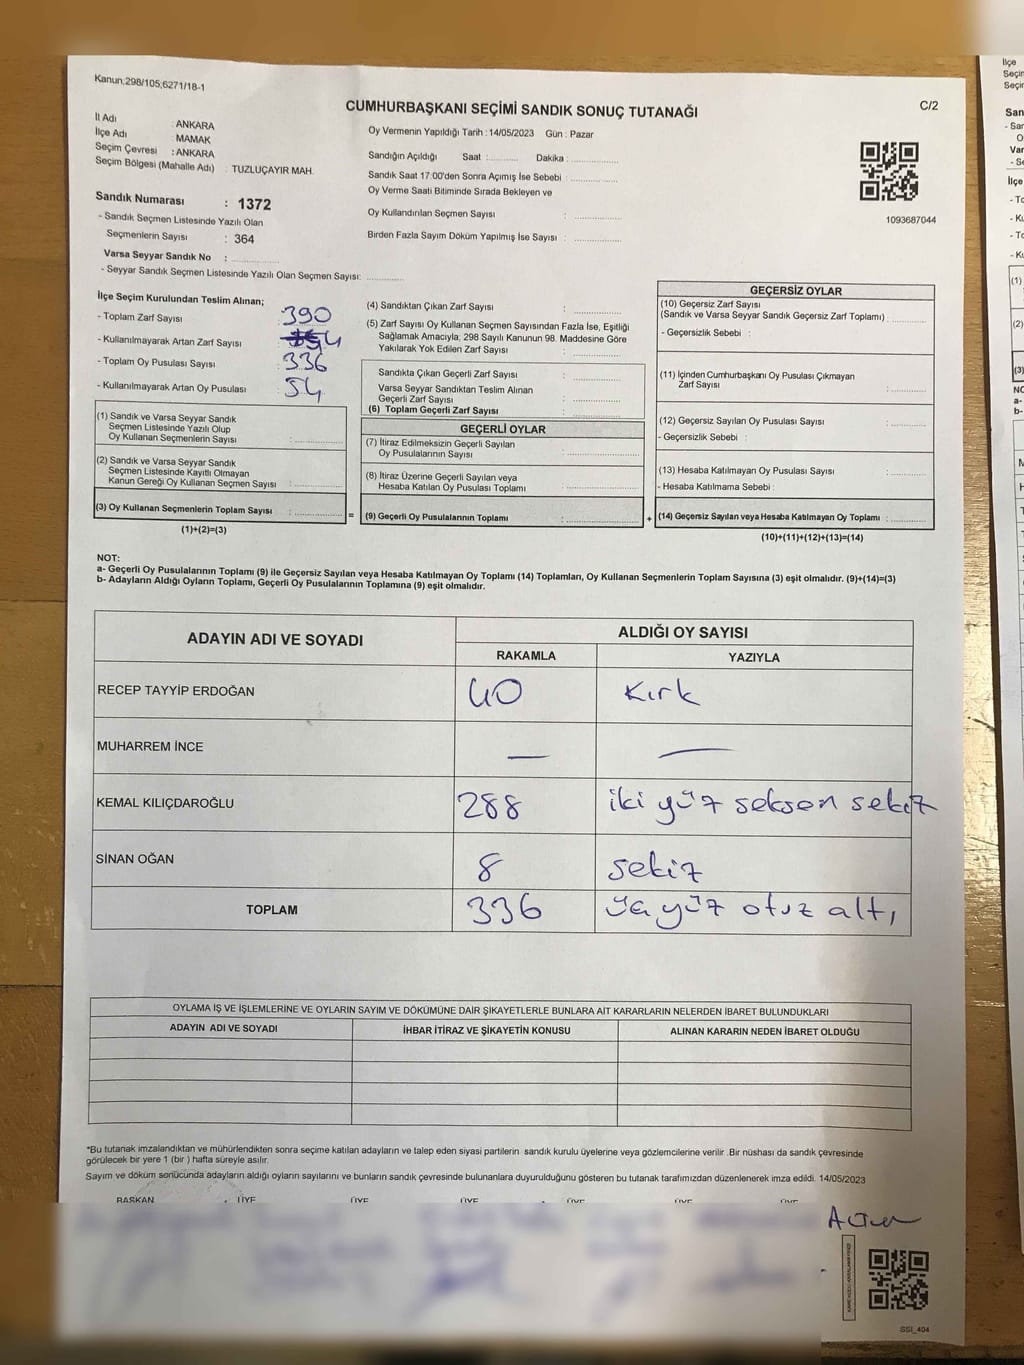 Kanun;298/105,6271/18-1
C/2
CUMHURBAŞKANI SEÇİMİ SANDIK SONUÇ TUTANAĞI
İl Adı : ANKARA
İlçe Adı MAMAK
Seçim Çevresi : ANKARA
Seçim Bölgesi (Mahalle Adı) : TUZLUÇAYIR MAH.
Sandık Numarası : 1372
- Sandık Seçmen Listesinde Yazılı Olan
Seçmenlerin Sayısı : 364
Varsa Seyyar Sandık No :
- Seyyar Sandık Seçmen Listesinde Yazılı Olan Seçmen Sayısı:
Oy Vermenin Yapıldığı Tarih : 14/05/2023 Gün : Pazar
Sandığın Açıldığı Saat : Dakika :
Sandık Saat 17:00'den Sonra Açımış İse Sebebi :
Oy Verme Saati Bitiminde Sırada Bekleyen ve
Oy Kullandırılan Seçmen Sayısı :
Birden Fazla Sayım Döküm Yapılmış İse Sayısı :
1093687044
İlçe Seçim Kurulundan Teslim Alınan;
- Toplam Zarf Sayısı : 390
- Kullanılmayarak Artan Zarf Sayısı : 54
- Toplam Oy Pusulası Sayısı : 336
- Kullanılmayarak Artan Oy Pusulası : 54
(1) Sandık ve Varsa Seyyar Sandık
Seçmen Listesinde Yazılı Olup
Oy Kullanan Seçmenlerin Sayısı :
(2) Sandık ve Varsa Seyyar Sandık
Seçmen Listesinde Kayıtlı Olmayan
Kanun Gereği Oy Kullanan Seçmen Sayısı :
(3) Oy Kullanan Seçmenlerin Toplam Sayısı :
(1)+(2)=(3)
(4) Sandıktan Çıkan Zarf Sayısı :
(5) Zarf Sayısı Oy Kullanan Seçmen Sayısından Fazla İse, Eşitliği
Sağlamak Amacıyla; 298 Sayılı Kanunun 98. Maddesine Göre
Yakılarak Yok Edilen Zarf Sayısı :
Sandıkta Çıkan Geçerli Zarf Sayısı :
Varsa Seyyar Sandıktan Teslim Alınan
Geçerli Zarf Sayısı :
(6) Toplam Geçerli Zarf Sayısı :
GEÇERLİ OYLAR
(7) İtiraz Edilmeksizin Geçerli Sayılan
Oy Pusulalarının Sayısı :
(8) İtiraz Üzerine Geçerli Sayılan veya
Hesaba Katılan Oy Pusulası Toplamı :
= (9) Geçerli Oy Pusulalarının Toplamı :
GEÇERSİZ OYLAR
(10) Geçersiz Zarf Sayısı
(Sandık ve Varsa Seyyar Sandık Geçersiz Zarf Toplamı) :
- Geçersizlik Sebebi :
(11) İçinden Cumhurbaşkanı Oy Pusulası Çıkmayan
Zarf Sayısı :
(12) Geçersiz Sayılan Oy Pusulası Sayısı :
- Geçersizlik Sebebi :
(13) Hesaba Katılmayan Oy Pusulası Sayısı :
- Hesaba Katılmama Sebebi :
+ (14) Geçersiz Sayılan veya Hesaba Katılmayan Oy Toplamı :
(10)+(11)+(12)+(13)=(14)
NOT:
a- Geçerli Oy Pusulalarının Toplamı (9) ile Geçersiz Sayılan veya Hesaba Katılmayan Oy Toplamı (14) Toplamları, Oy Kullanan Seçmenlerin Toplam Sayısına (3) eşit olmalıdır. (9)+(14)=(3)
b- Adayların Aldığı Oyların Toplamı, Geçerli Oy Pusulalarının Toplamına (9) eşit olmalıdır.
ADAYIN ADI VE SOYADI ALDIĞI OY SAYISI
RAKAMLA YAZIYLA
RECEP TAYYİP ERDOĞAN 40 Kırk
MUHARREM İNCE — —
KEMAL KILIÇDAROĞLU 288 iki yüz seksen sekiz
SİNAN OĞAN 8 sekiz
TOPLAM 336 üç yüz otuz altı
OYLAMA İŞ VE İŞLEMLERİNE VE OYLARIN SAYIM VE DÖKÜMÜNE DAİR ŞİKAYETLERLE BUNLARA AİT KARARLARIN NELERDEN İBARET BULUNDUKLARI
ADAYIN ADI VE SOYADI İHBAR İTİRAZ VE ŞİKAYETİN KONUSU ALINAN KARARIN NEDEN İBARET OLDUĞU
*Bu tutanak imzalandıktan ve mühürlendikten sonra seçime katılan adayların ve talep eden siyasi partilerin sandık kurulu üyelerine veya gözlemcilerine verilir .Bir nüshası da sandık çevresinde
görülecek bir yere 1 (bir ) hafta süreyle asılır.
Sayım ve döküm sonucunda adayların aldığı oyların sayılarını ve bunların sandık çevresinde bulunanlara duyurulduğunu gösteren bu tutanak tarafımızdan düzenlenerek imza edildi. 14/05/2023
BAŞKAN ÜYE ÜYE ÜYE ÜYE ÜYE ÜYE
SSİ_404